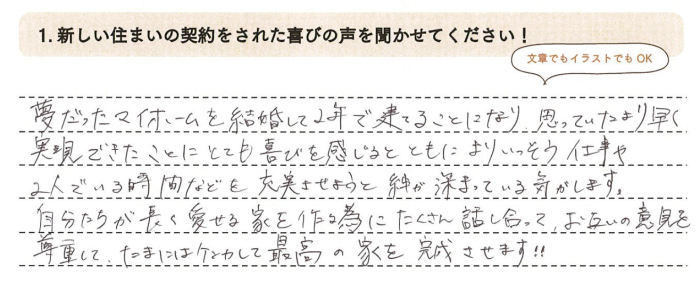 1. 新しい住まいの契約をされた喜びの声を聞かせてください！
文章でもイラストでもOK
夢だったマイホームを結婚して2年で建てることになり、思っていたより早く
実現できたことにとても喜びを感じるとともによりいっそう仕事や
2人でいる時間などを充実させようと絆が深まっている気がします。
自分たちが長く愛せる家を作る為にたくさん話し合って、お互いの意見を
尊重して、たまにはケンカして最高の家を完成させます!!